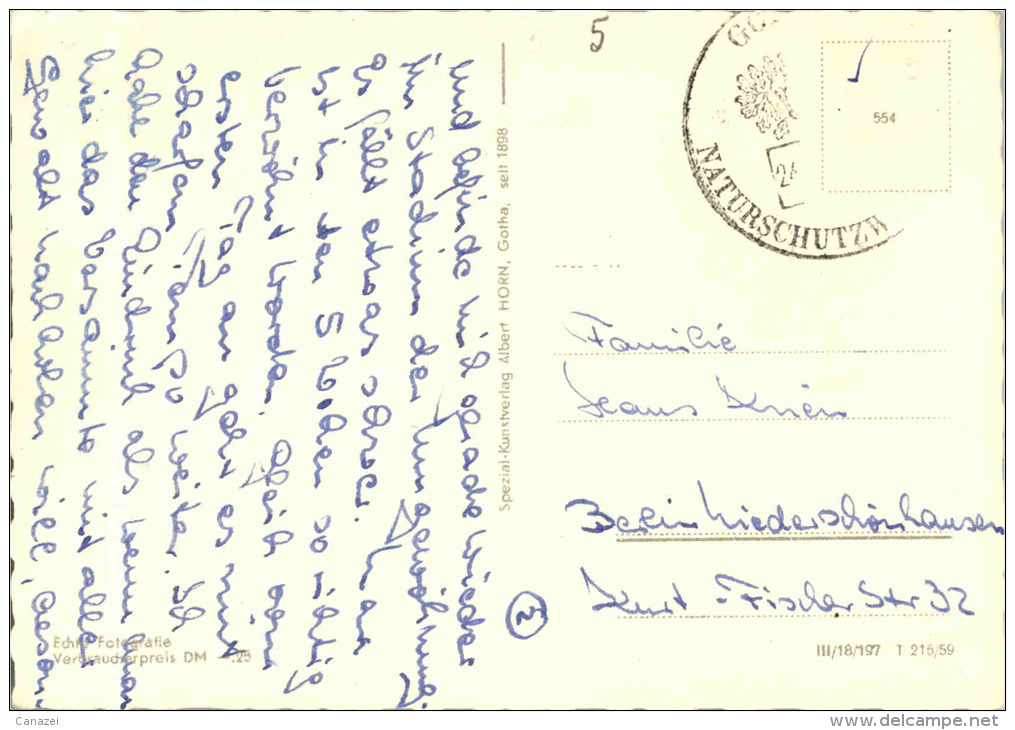 5
und befinde mich gerade wieder
im Stadium der Umgewöhnung
es fällt etwas schwer. Man
ist in den 5 Wochen so richtig
verwöhnt worden. Gleich vom
ersten Tag an geht es mit
scharfem Tempo weiter. Ich
habe den Eindruck als wenn man
hier das Versäumte mit aller
Gewalt nachholen will,
Echte Fotografie
Verbraucherpreis DM -.25
Spezial-Kunstverlag Albert HORN, Gotha, seit 1898
2
NATURSCHUTZW
24
554
Familie
Hans
Berlin Niederschönhausen
Kurt-Fischer Str 32
III/18/197 T 216/59
Canazei
www.delcampe.net